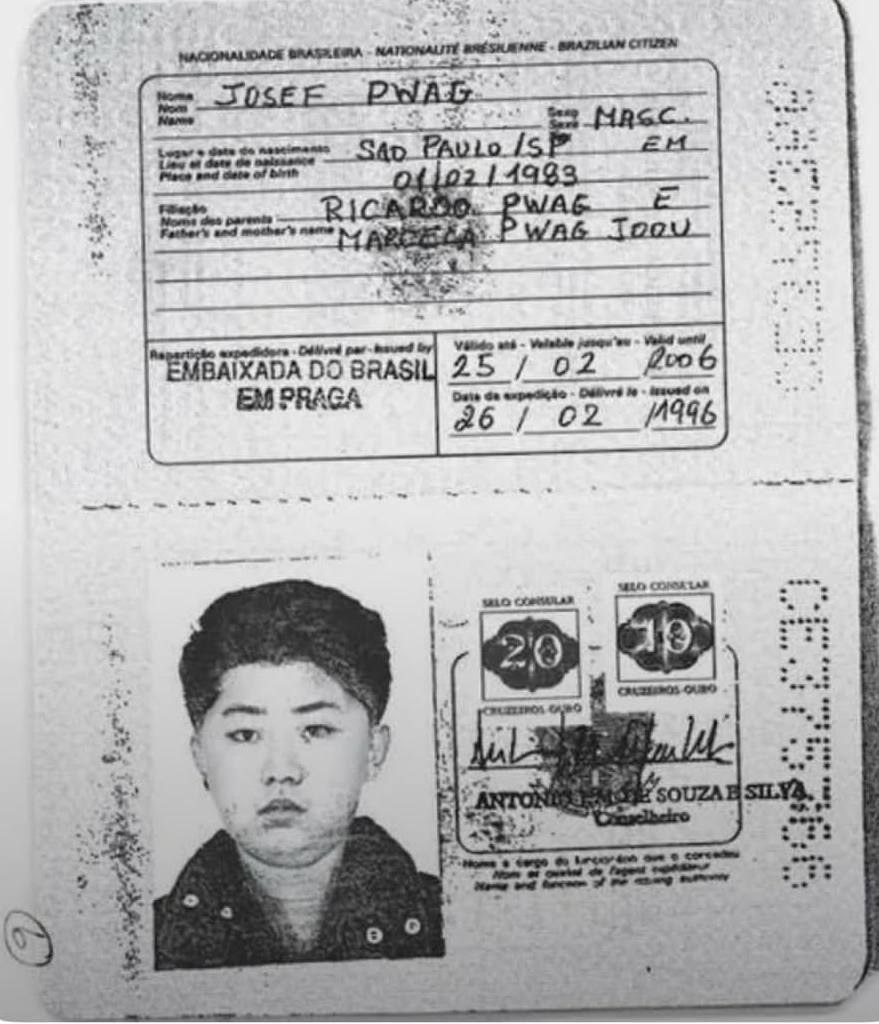 NACIONALIDADE BRASILEIRA - NATIONALITÉ BRÉSILIENNE - BRAZILIAN CITIZEN
Nome
Nom
Name
JOSEF PWAG
Sexo
Sexe
MASC.
Lugar e data do nascimento
Lieu et date de naissance
Place and date of birth
SAO PAULO/SP EM
01/02/1983
Filiação
Noms des parents
Father's and mother's name
RICARDO PWAG E
MARCELA PWAG JOOU
Repartição expedidora - Délivré par - Issued by
EMBAIXADA DO BRASIL
EM PRAGA
Válido até - Valable jusqu'au - Valid until
25 / 02 /2006
Data da expedição - Délivré le - Issued on
26 / 02 /1996
SELO CONSULAR
20
CRUZEIROS-OURO
SELO CONSULAR
10
CRUZEIROS-OURO
ANTONIO DE SOUZA E SILVA
Conselheiro
Nome e cargo do funcionário que o concedeu
Nom et qualité de l'agent
Name and function of the issuing authority
6